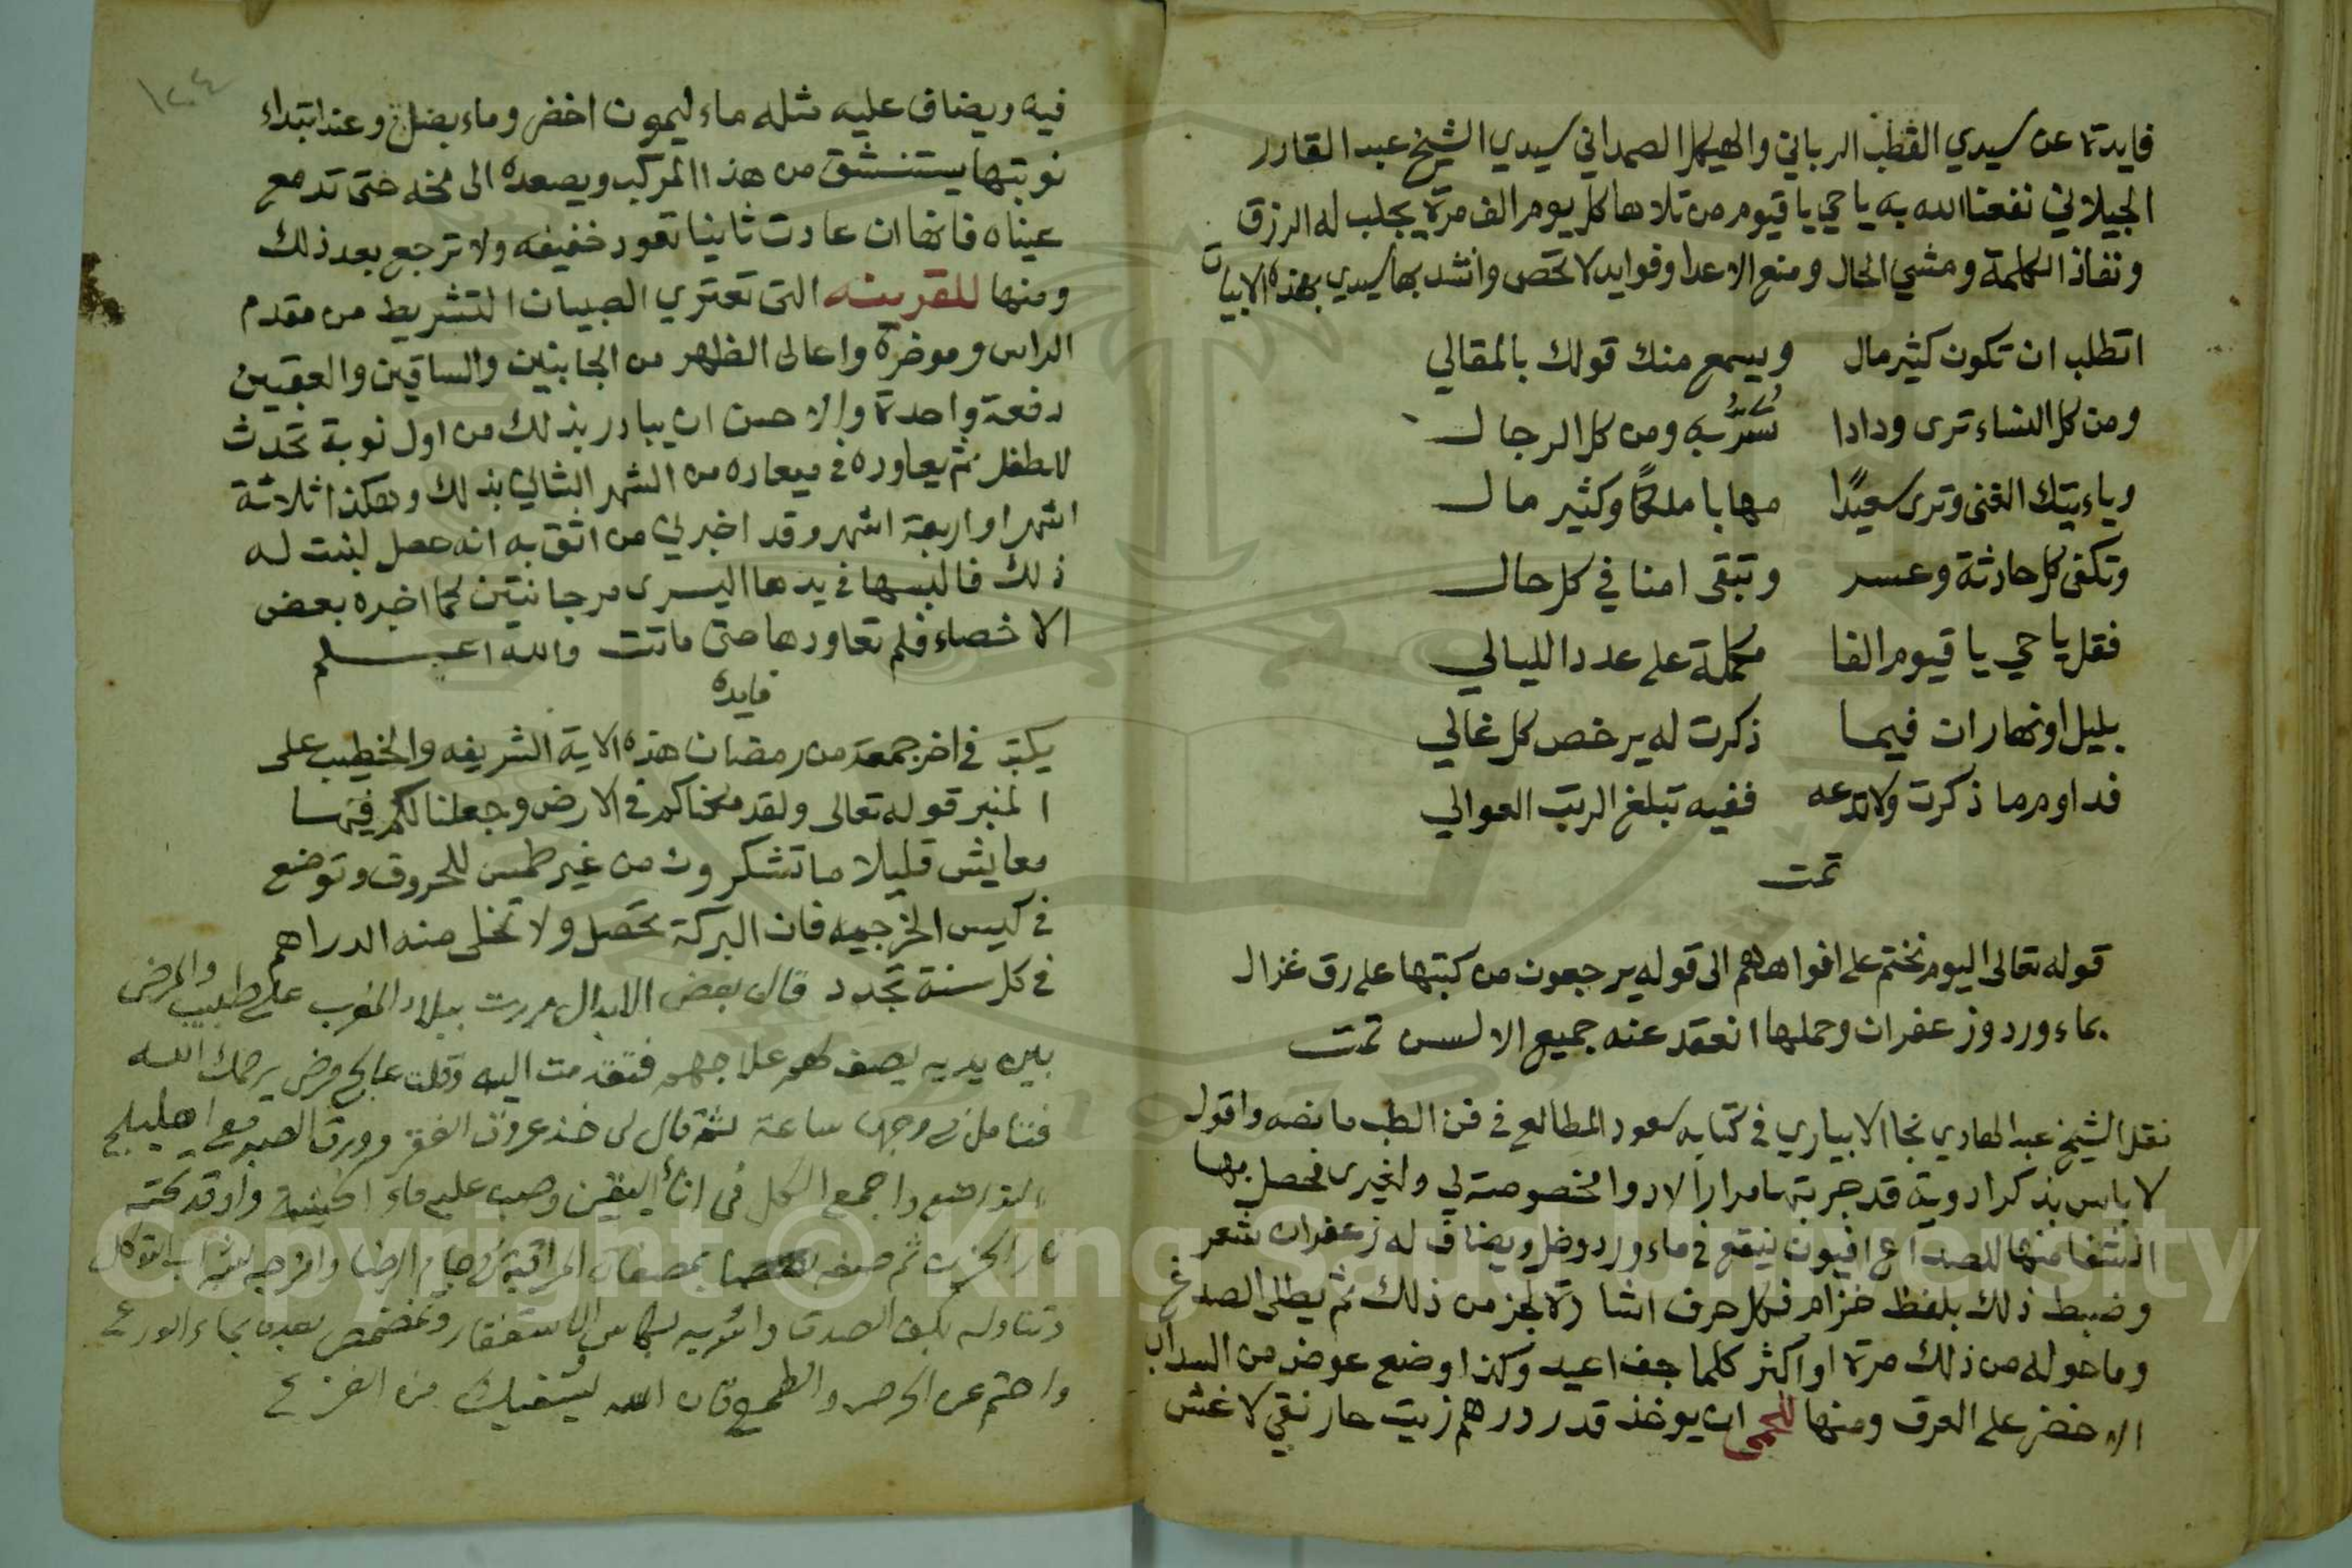 فايدة عن سيدي القطب الرباني والهيكل الصمداني سيدي الشيخ عبد القادر
الجيلاني نفعنا الله به يا حي يا قيوم من تلاها كل يوم الف مرة يجلب له الرزق
ونفاذ الكلمة ومشي الحال ومنع الاعدا وفوايد لا تحص وانشد بها سيدي بهذه الابيات
اتطلب ان تكون كثير مال ويسمع منك قولك بالمقالي
ومن كل النساء ترى ودادا تسر به ومن كل الرجال
وياءتيك الغنى وترى سعيدًا مهابا ملكًا وكثير مال
وتكفى كل حادثة وعسر وتبقى امنا في كل حال
فقل يا حي يا قيوم الفا مكملة على عدد الليالي
بليل او نهار ان فيما ذكرت له يرخص كل غالي
فداوم ما ذكرت ولا تدعه ففيه تبلغ الرتب العوالي
تمت
قوله تعالى اليوم نختم على افواههم الى قوله يرجعون من كتبها على رق غزال
بماء ورد وزعفران وحملها انعقد عنه جميع الالسن تمت
نقل الشيخ عبد الهادي نجا الابياري في كتابه سعود المطالع في فن الطب ما نصه واقول
لا باس بذكر ادوية قد جربتها مرارا لادوا مخصوصة لي ولغيري فحصل بها
الشفا منها للصداع افيون ينقع في ماء ورد وخل ويضاف له زعفران شعر
وضبط ذلك بلفظ خزام فكل حرف اشارة لجز من ذلك ثم يطلى الصدغ
وما حوله من ذلك مرة او اكثر كلما جف اعيد وكذا وضع عوض من السداب
الاخضر على العرق ومنها للحمى ان يوخذ قدر درهم زيت حار نقي لا غش
١٠٤
فيه ويضاف عليه مثله ماء ليمون اخضر وماء بصل وعند ابتداء
نوبتها يستنشق من هذا المركب ويصعده الى مخه حتى تدمع
عيناه فانها ان عادت ثانيا تعود خفيفه ولا ترجع بعد ذلك
ومنها للقرينه التى تعتري الصبيان التشريط من مقدم
الراس وموخره واعالى الظهر من الجانبين والساقين والعقبين
دفعة واحدة والاحسن ان يبادر بذلك من اول نوبة تحدث
للطفل ثم يعاوده في ميعاده من الشهر الثاني بذلك وهكذا ثلاثة
اشهر او اربعة اشهر وقد اخبرني من اثق به انه حصل لبنت له
ذلك فالبسها في يدها اليسرى مرجانتين كما اخبره بعض
الاخصاء فلم تعاودها حتى ماتت والله اعلم
فايده
يكتب في اخر جمعة من رمضان هذه الاية الشريفه والخطيب على
المنبر قوله تعالى ولقد مكناكم في الارض وجعلنا لكم فيها
معايش قليلا ما تشكرون من غير طمس للحروف وتوضع
في كيس الخرجيه فان البركة تحصل ولا تخلى منه الدراهم
في كل سنة تجدد قال بعض الابدال مررت ببلاد المغرب على طبيب والمرضى
بين يديه يصف لهم علاجهم فتقدمت اليه وقلت عالج مرضي يرحمك الله
فتامل في وجهي ساعة ثم قال لى خذ عروق الفقر وورق الصبر مع اهليلج
التواضع واجمع الكل فى اناء اليقين وصب عليه ماء الخشية واوقد تحته
نار الحزن ثم صفه بمصفاة المراقبة في جام الرضا وامزجه بشراب التوكل
وتناوله بكف الصدق واشربه بكاس الاستغفار وتمضمض بعده بماء الورع
واحتم عن الحرص والطمع فان الله يشفيك من